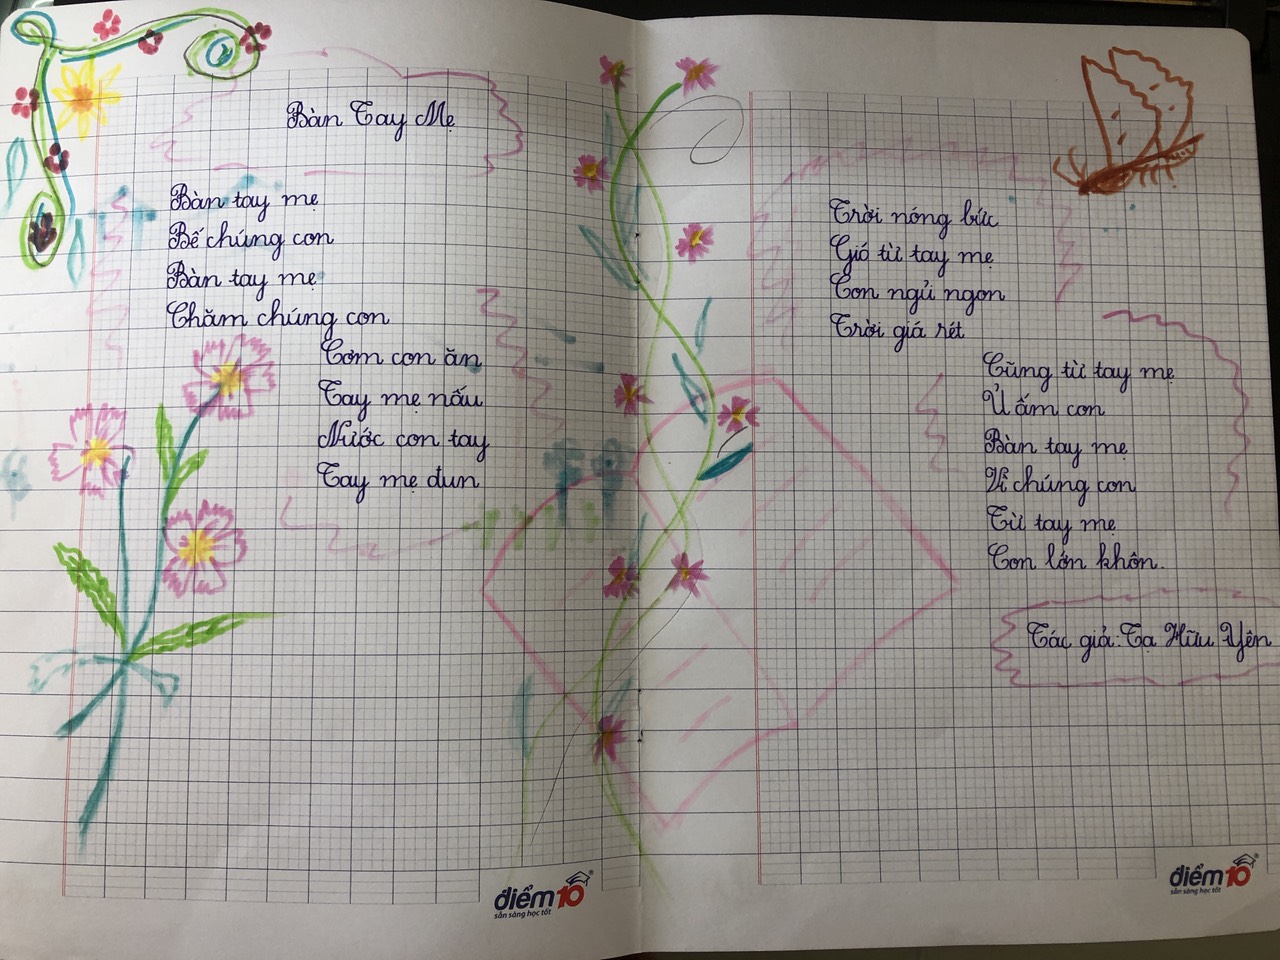 Bàn Tay Mẹ
Bàn tay mẹ
Bế chúng con
Bàn tay mẹ
Chăm chúng con
Cơm con ăn
Tay mẹ nấu
Nước con tay
Tay mẹ đun
điểm10
sẵn sàng học tốt
Trời nóng bức
Gió từ tay mẹ
Con ngủ ngon
Trời giá rét
Cũng từ tay mẹ
Ủ ấm con
Bàn tay mẹ
Vì chúng con
Từ tay mẹ
Con lớn khôn.
Tác giả: Tạ Hữu Yên
điểm10
sẵn sàng học tốt